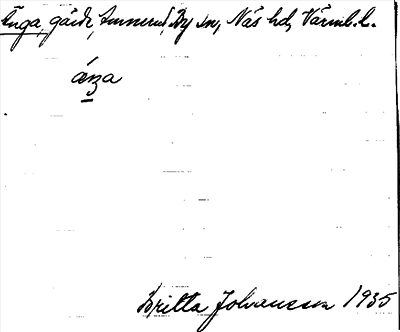 Änga, gärde, Smnerud, By sn, Näs hd, Värml. l.
áŋa
Britta Johansson 1935